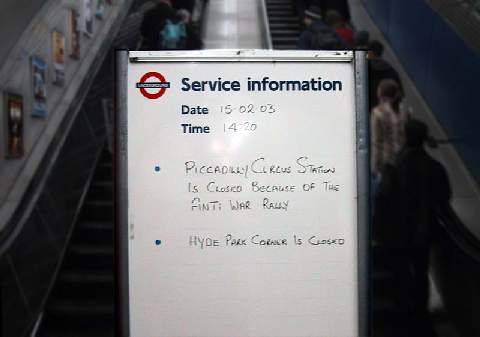 UNDERGROUND
Service information
Date 15-02-03
Time 14-20
• PICCADILLY CIRCUS STATION
IS CLOSED BECAUSE OF THE
ANTI WAR RALLY
• HYDE PARK CORNER IS CLOSED